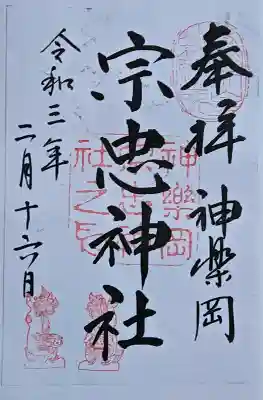 奉拝 神楽岡
宗忠神社
令和三年
二月十六日
神樂岡
社之印